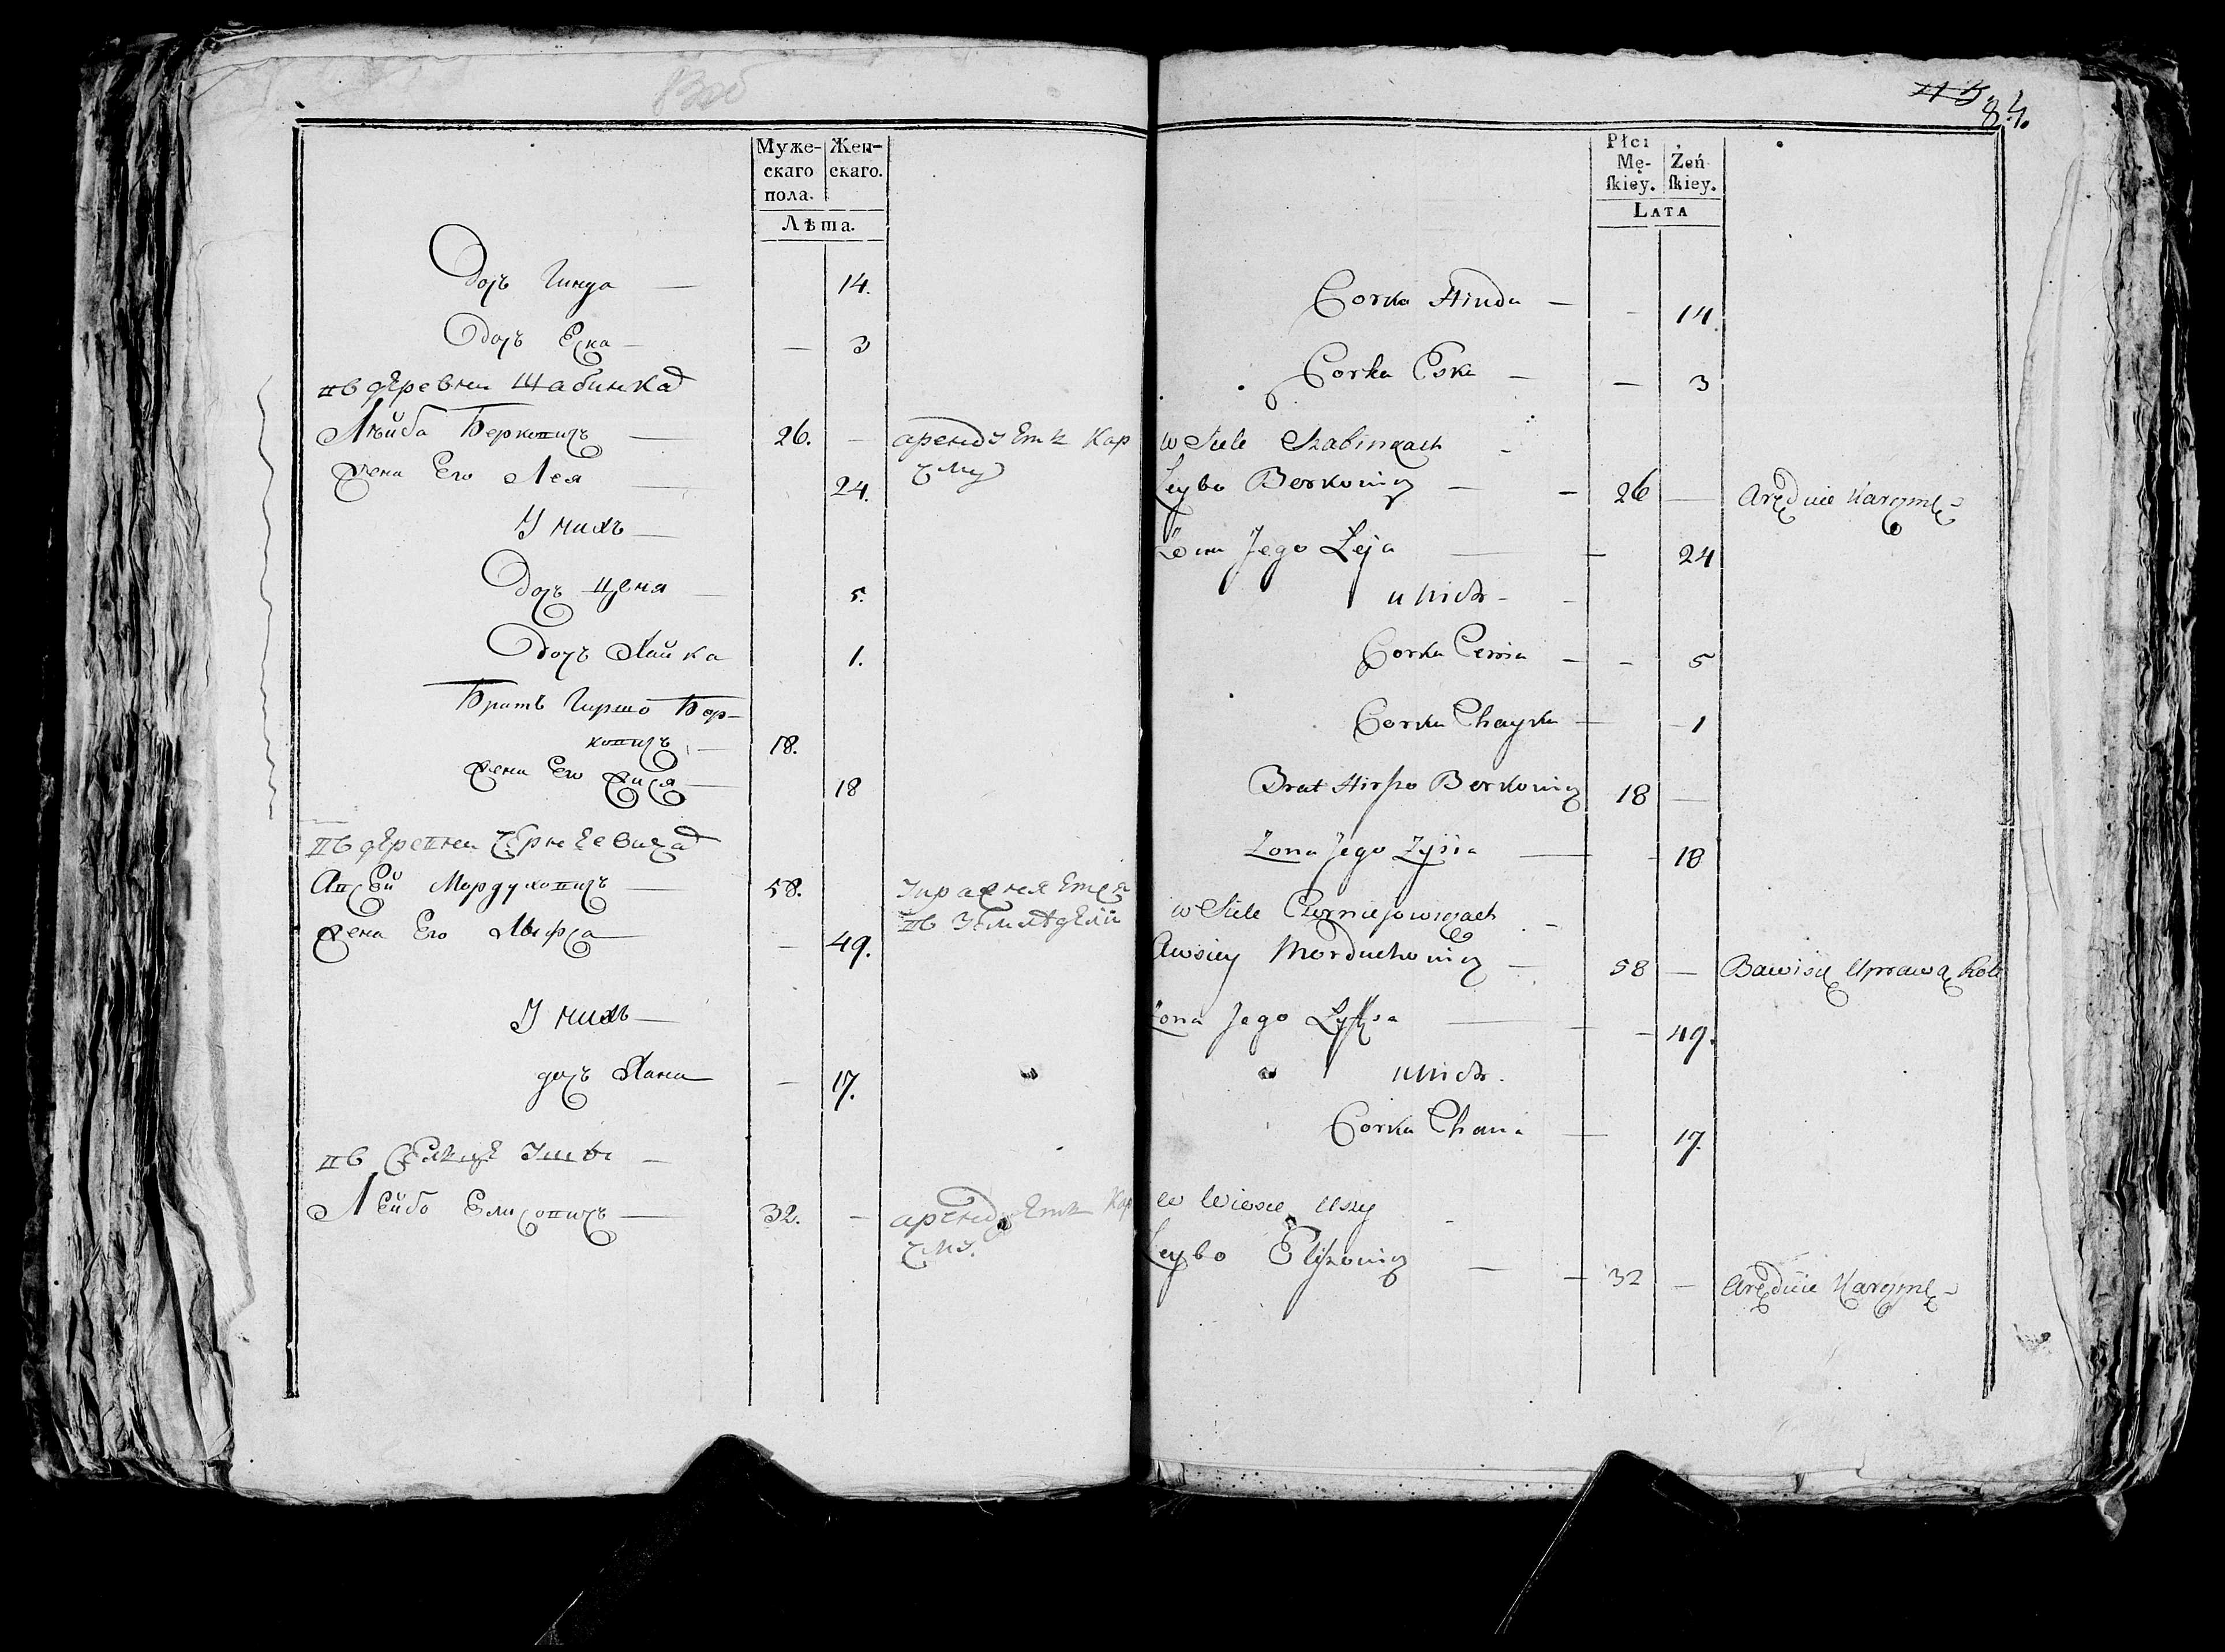 Муже-
скаго
пола.
Жен-
скаго.
Лѣта.
Дочь Гинда — 14.
Дочь Еска — — 3
въ деревни Шабинках
Лейба Берковичъ — 26. — арендуетъ кар
чму
Жена Его Лея — 24.
У нихъ —
Дочь Ценя — 5.
Дочь Хайка 1.
Братъ Гиршо Бер-
ковичъ — 18.
Жена Его Зися — 18
въ деревни Чернеевичах
Авсей Мордуховичъ — 58. упражняется
въ земледелii
Жена Его — 49.
У нихъ —
дочь Хана — 17.
въ Ушы —
Лейбо Елисовичъ — 32. — арендуетъ кар
чму.
113 84.
Płci
Mę-
ſkiey.
Żeń
ſkiey.
Lata
Corka Hinda — - 14.
Corka Eska — — 3
w Siele Szabinkach -
Leybo Berkowicz — - 26 — Aręduie Karczmę -
Żona Jego Leja — - 24
u nich - -
Corka Cenia - - 5
Corka Chayka — - 1
Brat Hirszo Berkowicz 18 —
Żona Jego Zysia — - 18
w Siele Czerniejowiczach -
Awsiey Morduchowicz — 58 — Bawi się Uprawą Roli
Żona Jego — - 49.
u nich.
Corka Chana — 17.
w Uszy -
Leybo Eliszowicz — - 32 — Aręduie Karczmę -